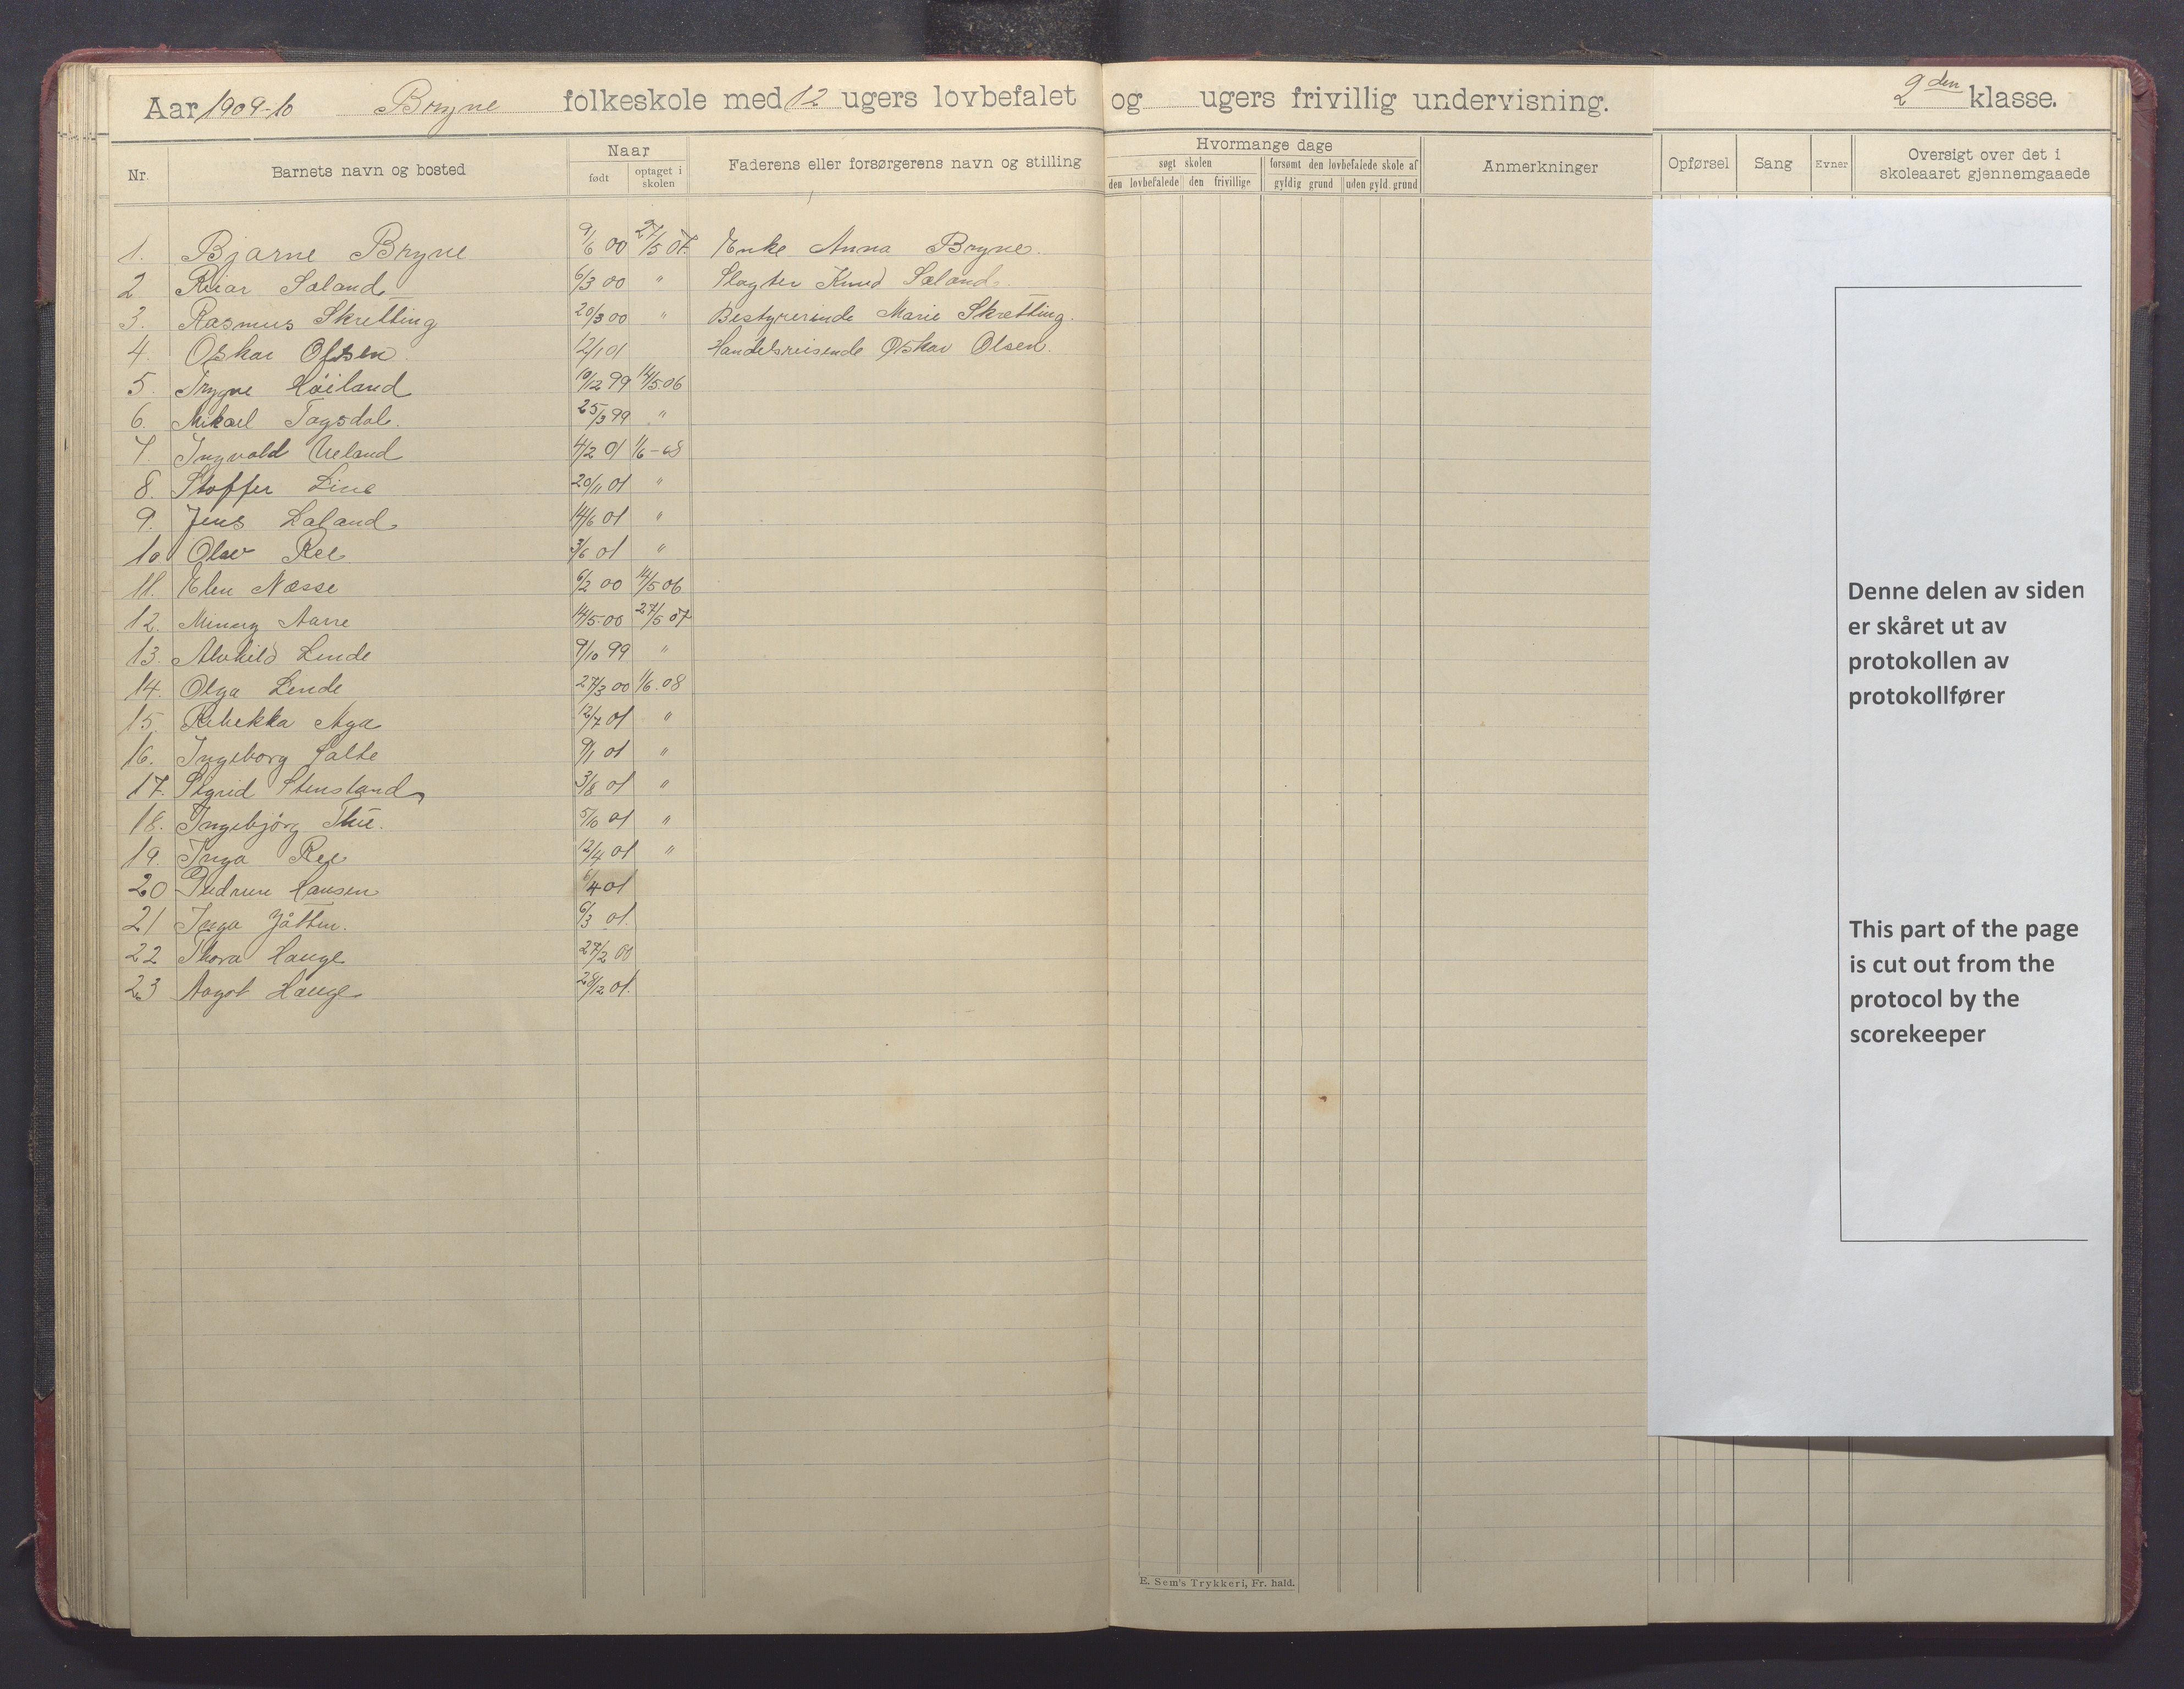 Aar 1909-10 Bryne folkeskole med 12 ugers lovbefalet og ugers frivillig undervisning. 2den klasse.
Nr. Barnets navn og bosted Naar født optaget i skolen Faderens eller forsørgerens navn og stilling Hvormange dage søgt skolen den lovbefalede den frivillige forsømt den lovbefalede skole af gyldig grund uden gyld. grund Anmerkninger Opførsel Sang Evner Oversigt over det i skoleaaret gjennemgaaede
1. Bjarne Bryne 9/6 00 27/5 07. Enke Anna Bryne.
2. Reiar Sæland 6/3 00 " Slagter Knud Sæland.
3. Rasmus Skretting 20/3 00 " Bestyrerinde Marie Skretting.
4. Oskar Olsen. 12/1 01 Handelsreisende Oskar Olsen.
5. Trygve Høiland 10/12 99 14/5 06
6. Mikael Tagsdal. 25/3 99 "
7 Ingvald Ueland 4/2 01 1/6-08
8. Stoffer Line 20/11 01 "
9. Jens Laland 14/6 01 "
10 Olav Ree 3/6 01 "
11. Elen Næsse 6/2 00 14/5 06
12. Minny Aarre 14/5-00 27/5 07
13. Alvhild Lende 9/10 99 "
14. Olga Lende 27/3 00 1/6.08
15. Rebekka Aga 12/7 01 "
16. Ingeborg Salte 9/1 01 "
17. Sigrid Stensland 3/8 01 "
18. Ingebjørg Thu. 5/10 01 "
19. Inga Ree 12/4 01 "
20 Gudrun Hansen 6/4 01
21 Inga Jåtten. 6/3 01.
22 Thora Hauge 27/2 00
23 Aagot Hauge 28/12 01.
Denne delen av siden
er skåret ut av
protokollen av
protokollfører
This part of the page
is cut out from the
protocol by the
scorekeeper
E. Sem's Trykkeri, Fr. hald.